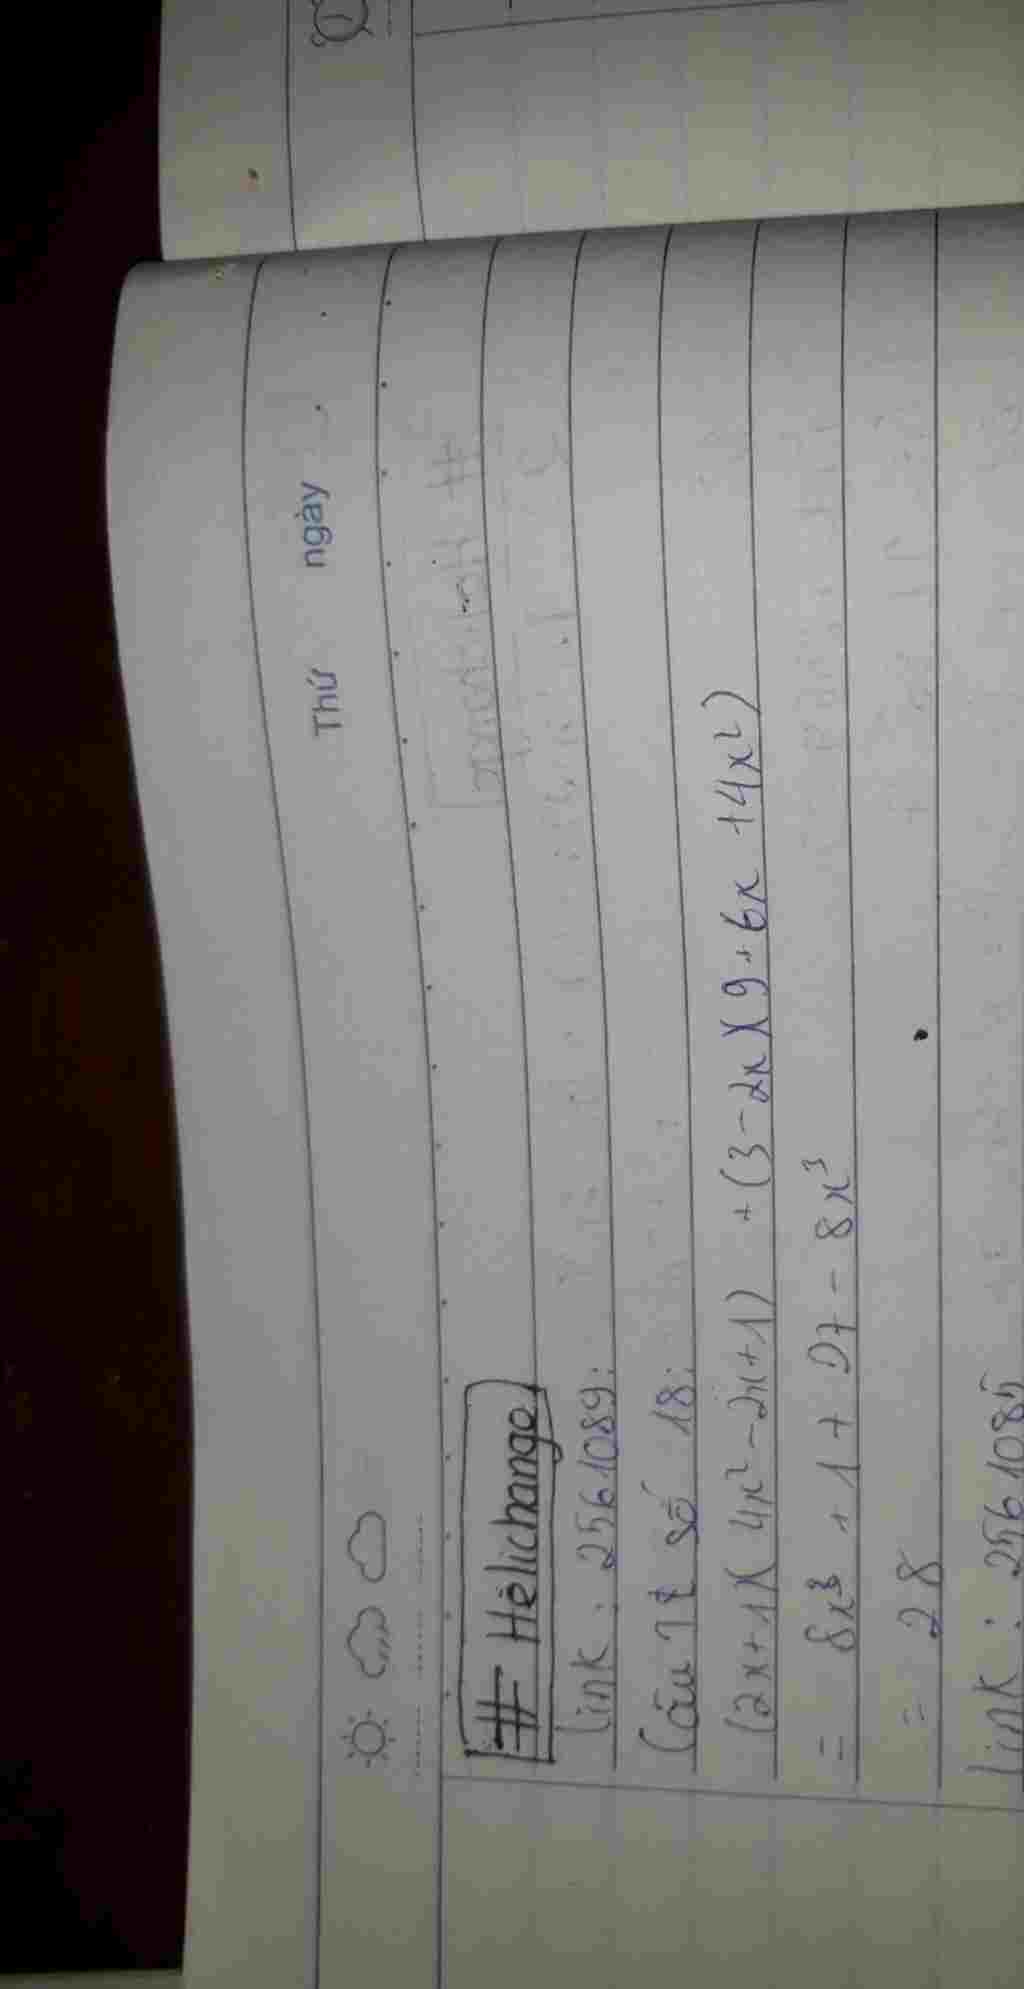 Thứ ngày
# Hèlichango
link : 2561089:
Câu số 18:
(2x+1)(4x²-2x+1) + (3-2x)(9+6x+4x²)
= 8x³ + 1 + 27 - 8x³
= 28
link : 2561085